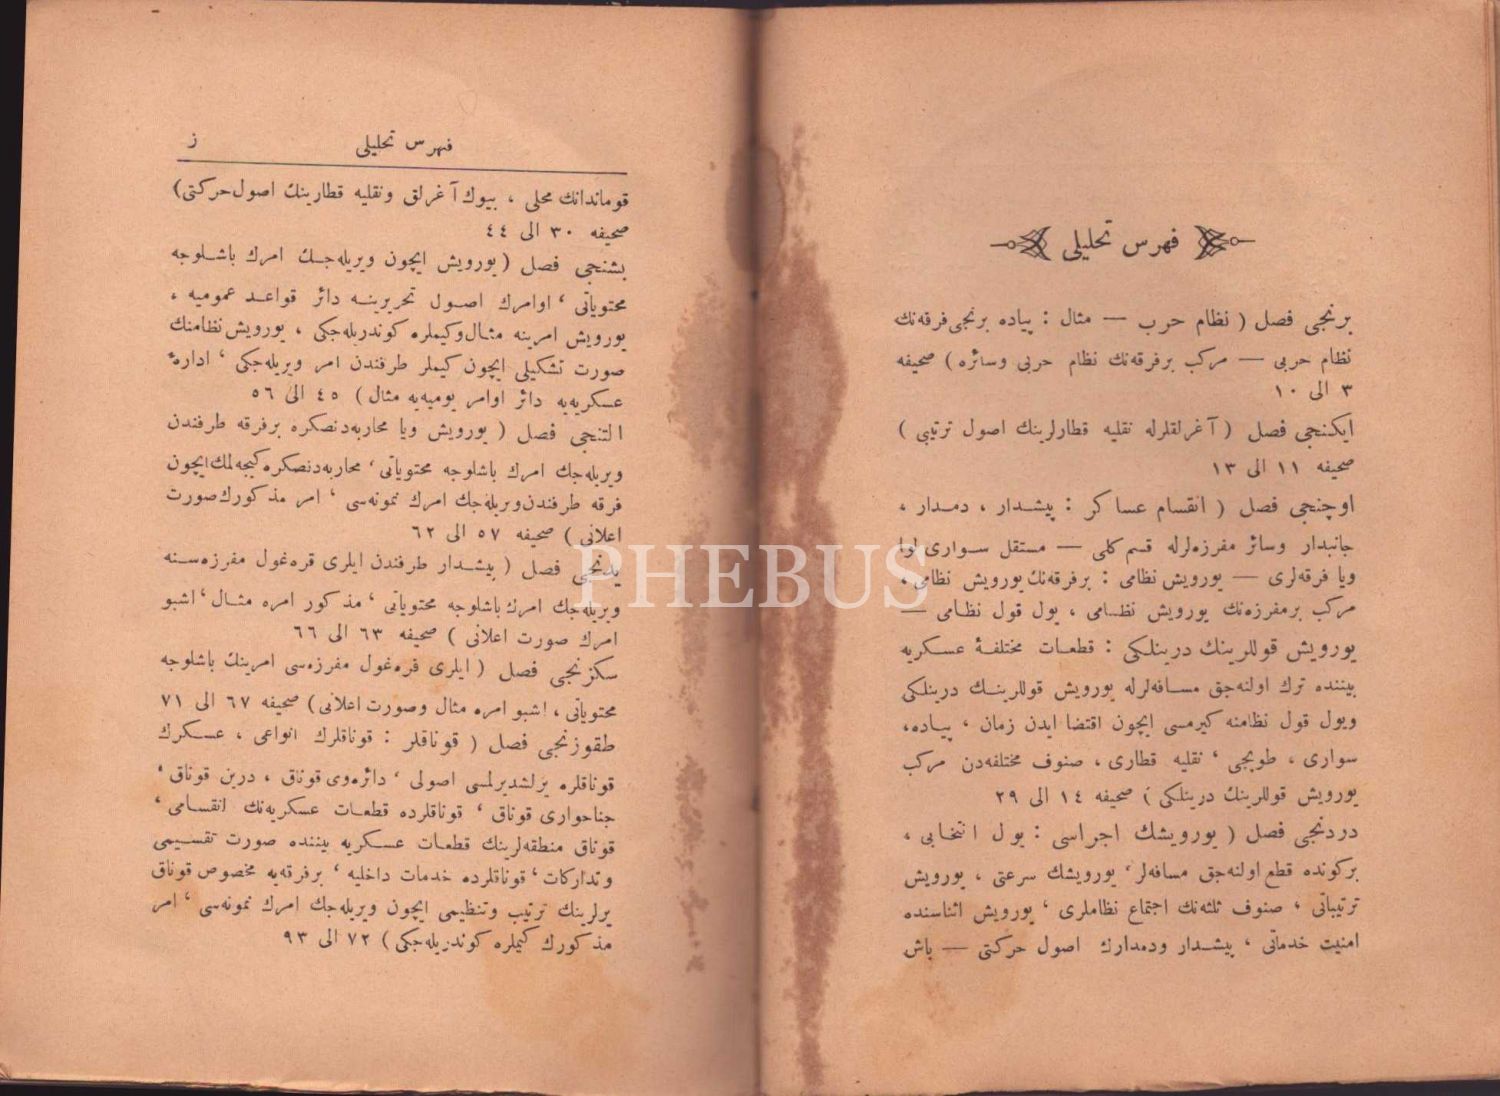 فهرس تحلیلی
برنجی فصل ( نظام حرب — مثال : پیاده برنجی فرقه‌نك
نظام حربی — مركب برفرقه‌نك نظام حربی وسائره ) صحیفه
۳ الی ۱۰
ایكنجی فصل ( آغرلقلرله نقلیه قطارلرینك اصول ترتیبی )
صحیفه ۱۱ الی ۱۳
اوچنجی فصل ( انقسام عساكر : پیشدار ، دمدار ،
جانبدار وسائر مفرزه‌لرله قسم كلی — مستقل سواری لوا
ویا فرقه‌لری — یورویش نظامی : برفرقه‌نك یورویش نظامی ،
مركب برمفرزه‌نك یورویش نظامی ، یول قول نظامی —
یورویش قوللرینك درینلكی : قطعات مختلفۀ عسكریه
بیننده ترك اولنه‌جق مسافه‌لرله یورویش قوللرینك درینلكی
ویول قول نظامنه كیرمسی ایچون اقتضا ایدن زمان ، پیاده ،
سواری ، طوبجی ، نقلیه قطاری ، صنوف مختلفه‌دن مركب
یورویش قوللرینك درینلكی ) صحیفه ۱٤ الی ۲۹
دردنجی فصل ( یورویشك اجراسی : یول انتخابی ،
بركونده قطع اولنه‌جق مسافه‌لر ، یورویشك سرعتی ، یورویش
ترتیباتی ، صنوف ثلثه‌نك اجتماع نظاملری ، یورویش اثناسنده
امنیت خدماتی ، پیشدار ودمدارك اصول حركتی — باش
فهرس تحلیلی ز
قوماندانك محلی ، بیوك آغرلق ونقلیه قطارینك اصول حركتی)
صحیفه ۳۰ الی ٤٤
بشنجی فصل ( یورویش ایچون ویریله‌جك امرك باشلوجه
محتویاتی ، اوامرك اصول تحریرینه دائر قواعد عمومیه ،
یورویش امرینه مثال وكیملره كوندریله‌جكی ، یورویش نظامنك
صورت تشكیلی ایچون كیملر طرفندن امر ویریله‌جكی ، ادارۀ
عسكریه‌یه دائر اوامر یومیه‌یه مثال ) ٤٥ الی ٥٦
التنجی فصل ( یورویش ویا محاربه‌دنصكره برفرقه طرفندن
ویریله‌جك امرك باشلوجه محتویاتی ، محاربه‌دنصكره كیجه‌لمك ایچون
فرقه طرفندن ویریله‌جك امرك نمونه‌سی ، امر مذكورك صورت
اعلانی ) صحیفه ٥۷ الی ٦۲
یدنجی فصل ( پیشدار طرفندن ایلری قره‌غول مفرزه‌سنه
ویریله‌جك امرك باشلوجه محتویاتی ، مذكور امره مثال ، اشبو
امرك صورت اعلانی ) صحیفه ٦۳ الی ٦٦
سكزنجی فصل ( ایلری قره‌غول مفرزه‌سی امرینك باشلوجه
محتویاتی ، اشبو امره مثال وصورت اعلانی ) صحیفه ٦۷ الی ۷۱
طقوزنجی فصل ( قوناقلر : قوناقلرك انواعی ، عسكرك
قوناقلره یرلشدیرلمسی اصولی ، دائره‌وی قوناق ، درین قوناق ،
جناحواری قوناق ، قوناقلرده قطعات عسكریه‌نك انقسامی ،
قوناق منطقه‌لرینك قطعات عسكریه بیننده صورت تقسیمی
وتداركات ، قوناقلرده خدمات داخلیه ، برفرقه‌یه مخصوص قوناق
یرلرینك ترتیب وتنظیمی ایچون ویریله‌جك امرك نمونه‌سی ، امر
مذكورك كیملره كوندریله‌جكی ) ۷۲ الی ۹۳
PHEBUS